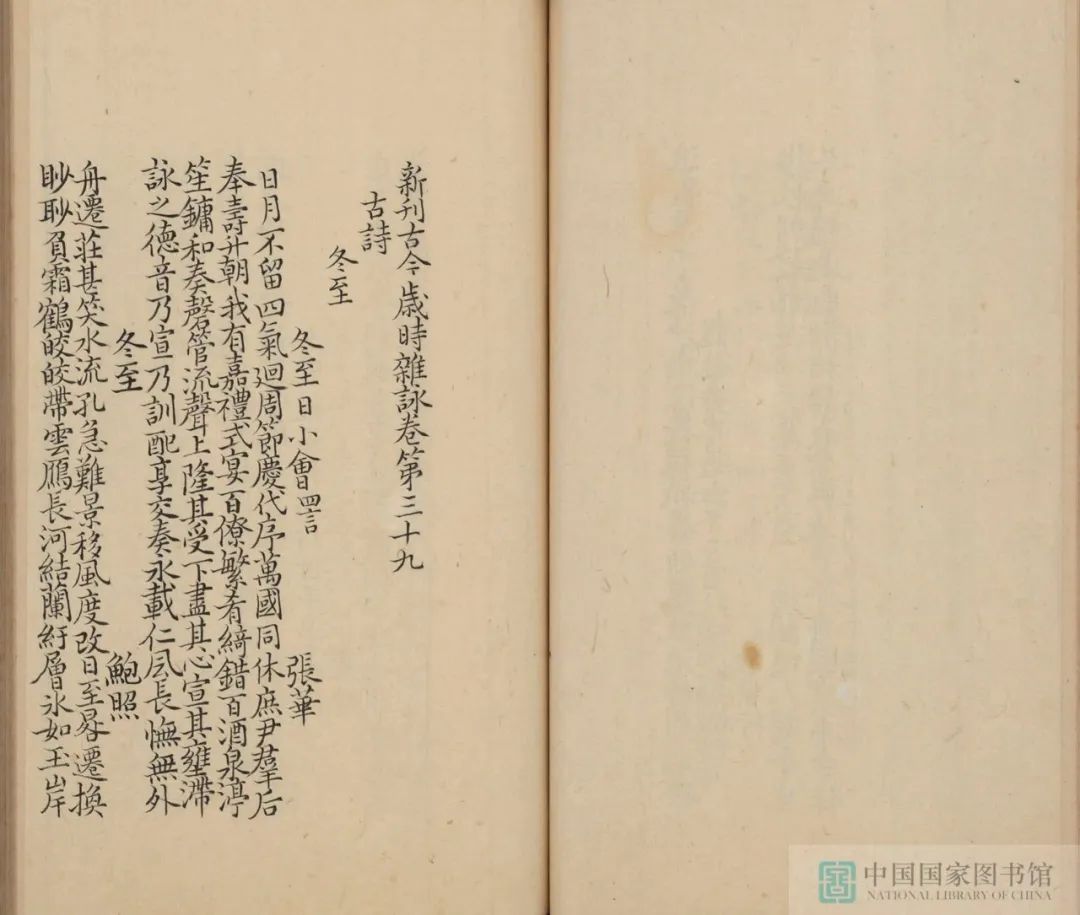 新刊古今歲時雜詠卷第三十九
古詩
冬至
冬至日小會四言 張華
日月不留四氣迴周節慶代序萬國同休庶尹羣后
奉壽升朝我有嘉禮式宴百僚繁肴綺錯百酒泉渟
笙鏞和奏磬管流聲上隆其受下盡其心宣其壅滯
詠之德音乃宣乃訓配享交奏永載仁風長撫無外
冬至 鮑照
舟遷莊甚笑水流孔急難景移風度改日至晷遷換
眇眇負霜鶴皎皎帶雲鴈長河結蘭紆層氷如玉岸
中国国家图书馆
NATIONAL LIBRARY OF CHINA